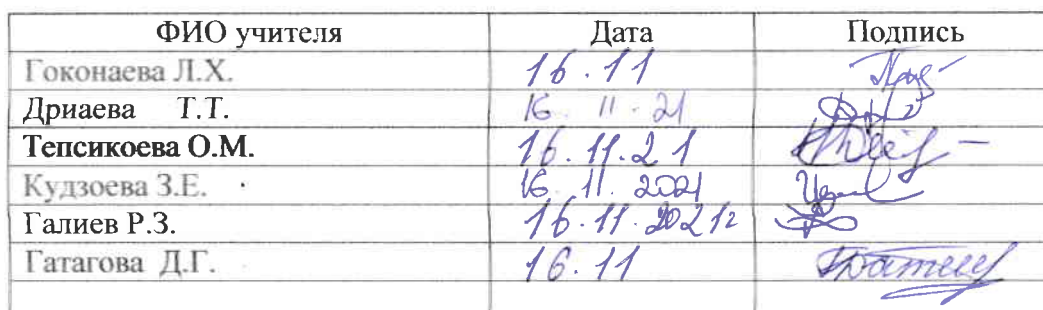 ФИО учителя Дата Подпись
Гоконаева Л.Х. 16.11
Дриаева Т.Т. 16. 11 - 21
Тепсикоева О.М. 16.11.21
Кудзоева З.Е. 16. 11. 2021
Галиев Р.З. 16.11.2021г
Гатагова Д.Г. 16.11